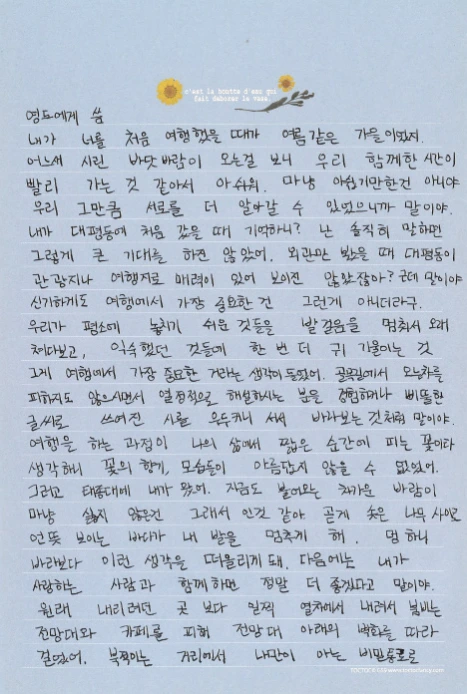 c'est la goutte d'eau qui
fait déborder le vase.
영도에게 씀
내가 너를 처음 여행했을 때가 여름같은 가을이었지.
어느새 시린 바닷바람이 오는걸 보니 우리 함께한 시간이
빨리 가는 것 같아서 아쉬워. 마냥 아쉽기만한건 아니야
우리 그만큼 서로를 더 알아갈 수 있었으니까 말이야.
내가 대평동에 처음 갔을 때 기억하니? 난 솔직히 말하면
그렇게 큰 기대를 하진 않았어. 외관만 봤을 때 대평동이
관광지나 여행지로 매력이 있어 보이진 않았잖아? 근데 말이야
신기하게도 여행에서 가장 중요한 건 그런게 아니더라구.
우리가 평소에 놓치기 쉬운 것들을 발걸음을 멈춰서 오래
쳐다보고, 익숙했던 것들에 한 번 더 귀 기울이는 것
그게 여행에서 가장 중요한 거라는 생각이 들었어. 골목길에서 오는차를
피하지도 않으시면서 열정적으로 해설하시는 분을 경험하거나 삐뚤한
글씨로 쓰여진 시를 우두커니 서서 바라보는 것처럼 말이야.
여행을 하는 과정이 나의 삶에서 짧은 순간에 피는 꽃이라
생각하니 꽃의 향기, 모습들이 아름답지 않을 수 없었어.
그리고 태종대에 내가 왔어. 지금도 불어오는 차가운 바람이
마냥 싫지 않은건 그래서 인것 같아. 곧게 솟은 나무 사이로
언뜻 보이는 바다가 내 발을 멈추게 해. 멍하니
바라보다 이런 생각을 떠올리게 돼. 다음에는 내가
사랑하는 사람과 함께하면 정말 더 좋겠다고 말이야.
원래 내리려던 곳 보다 일찍 열차에서 내려서 붐비는
전망대와 카페를 피해 전망대 아래의 벽화를 따라
걸었어. 북적이는 거리에서 나만이 아는 비밀통로로